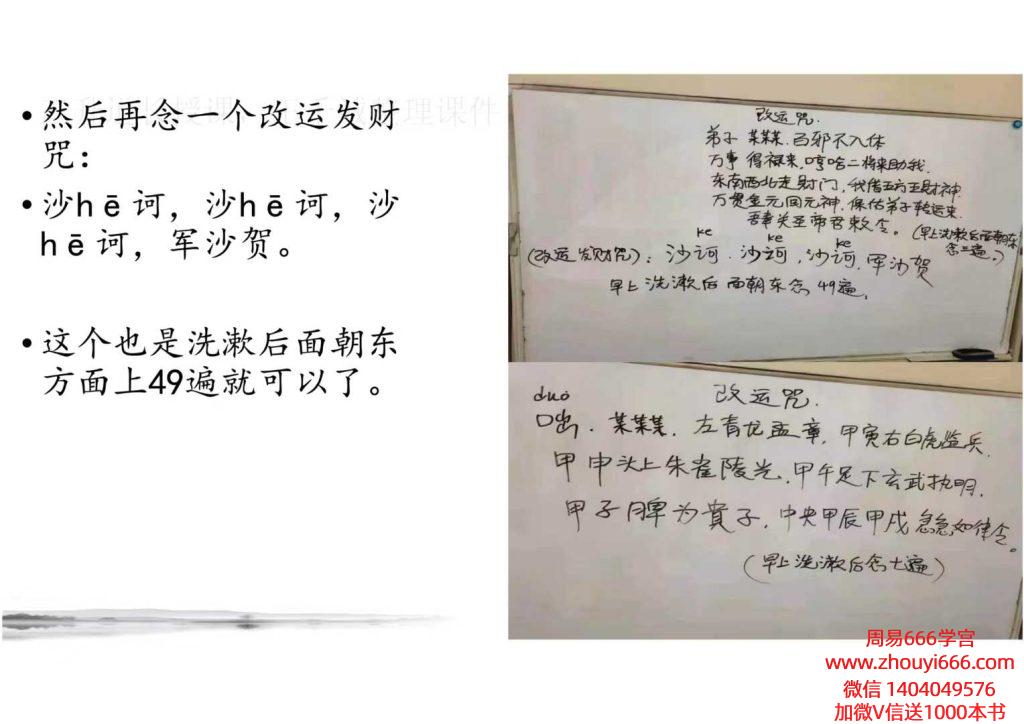 • 然后再念一个改运发财
咒：
• 沙hē诃，沙hē诃，沙
hē诃，军沙贺。
• 这个也是洗漱后面朝东
方面上49遍就可以了。
改运咒.
弟子 某某某. 百邪不入体
万事 得福来, 哼哈二将来助我.
东南西北走财门, 我借五方五财神.
万贯金元回元神. 保佑弟子转运来.
吾奉关圣帝君敕令。(早上洗漱后面朝东
念三遍。)
ke ke ke
(改运发财咒): 沙诃. 沙诃, 沙诃, 军沙贺
早上洗漱后面朝东念49遍.
duō 改运咒.
咄. 某某某. 左青龙孟章, 甲寅右白虎监兵.
甲申头上朱雀陵光, 甲午足下玄武执明.
甲子脾为貴子, 中央甲辰甲戌急急如律令。
(早上洗漱后念七遍)
周易666学宫
www.zhouyi666.com
微信 1404049576
加微V信送1000本书